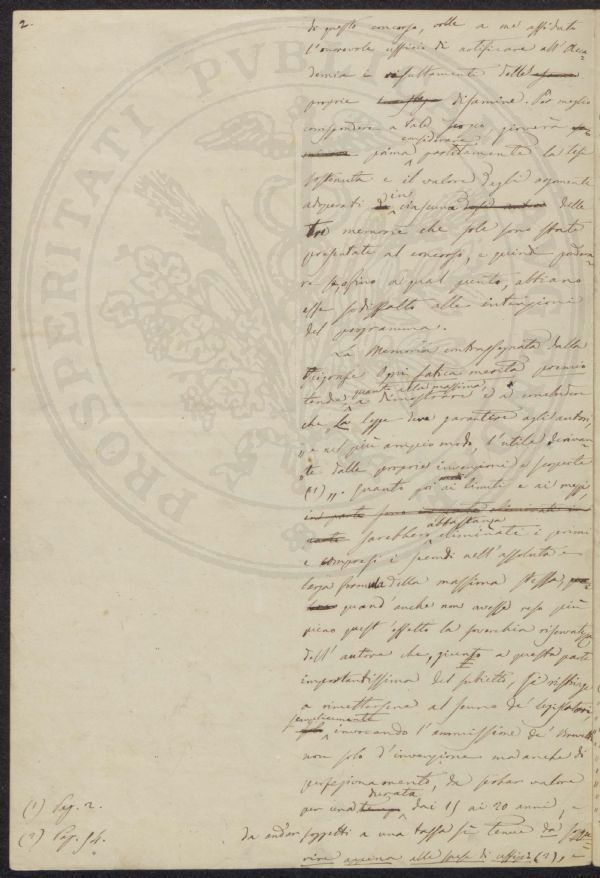 2.
di questo concorso, volle a me affidata
l'onorevole ufficio di notificare all'Acca=
demia i risultamenti delle
proprie disamine. Per meglio
corrispondere a tale scopo gioverà
considerare
prima partitamente la tesi
sostenuta e il valore degli argomenti
in
adoperati di ciascuna delle
tre memorie che sole sono state
presentate al concorso, e quindi
re fino a qual punto, abbiano
esse sodisfatto alle intenzioni
del programma.
La Memoria contrassegnata dalla
Ogni fatica merita premio
quanto alla massima
tende a dimostrare ed a concludere
che, la legge deve garantire agli autori,
„ e nel più ampio modo, l'utile derivan=
„ te dalle proprie invenzioni e scoperte
(1) „. Quanto poi ai limiti e ai mezzi,
in parte sono
abbastanza
sarebbero eliminati i primi
e compresi i secondi nell'assoluta e
larga formula della massima stessa,
quand'anche non avesse reso più
pieno quest'effetto la soverchia
dell'autore che, giunto a questa parte
importantissima del subietto, si ristringe
a rimettersene al senno de' legislatori
semplicemente
invocando l'ammissione de' Brevetti
non solo d'invenzione ma anche di
perfezionamento, da serbar valore
durata
per una dai 15 ai 20 anni, =
da andar soggetti a una tassa sì tenue da
appena alle spese di uffizio (2), =
(1) Pag. 2.
(2) Pag. 54.
PROSPERITATI PUBLICAE